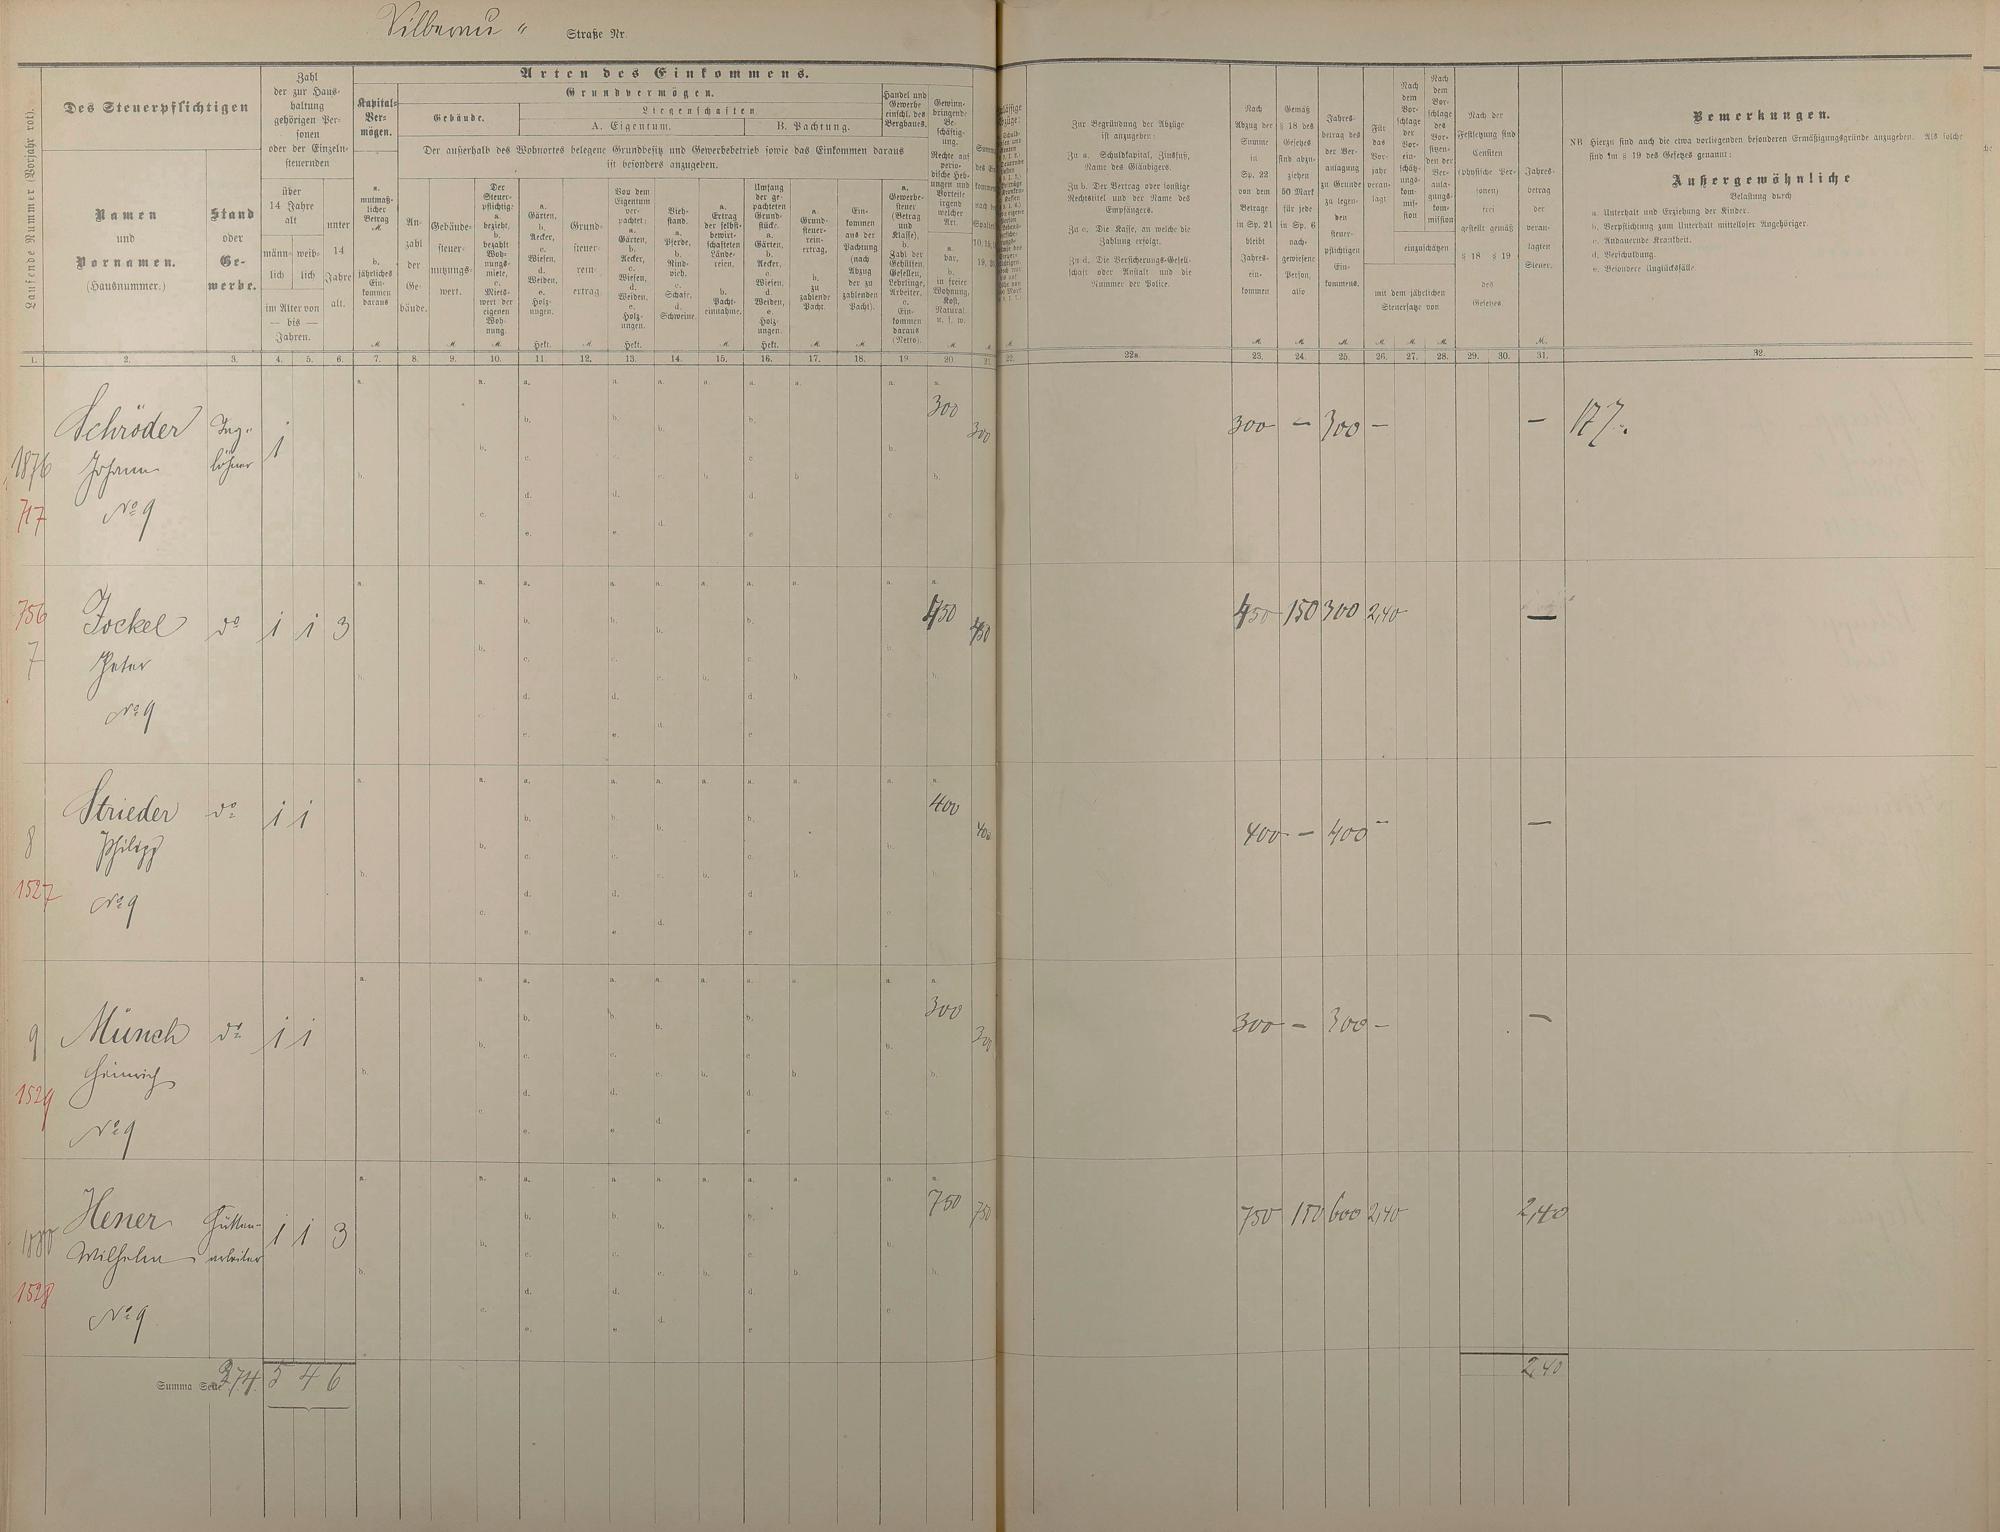 Straße Nr.
Laufende Nummer (Vorjahr rot).
Des Steuerpflichtigen
Namen
und
Vornamen.
(Hausnummer.)
Stand
oder
Ge-
werbe.
Zahl
der zur Haus-
haltung
gehörigen Per-
sonen
oder der Einzeln-
steuernden
über
14 Jahre
alt
männ-
lich
weib-
lich
im Alter von
— bis —
Jahren.
unter
14
Jahre
alt.
Arten des Einkommens.
Kapital-
Ver-
mögen.
a.
mutmaß-
licher
Betrag
M.
b.
jährliches
Ein-
kommen
daraus
M
Grundvermögen.
Gebäude.
Liegenschaften
A. Eigentum.
B. Pachtung.
Der außerhalb des Wohnortes belegene Grundbesitz und Gewerbebetrieb sowie das Einkommen daraus
ist besonders anzugeben.
An-
zahl
der
Ge-
bäude.
Gebäude-
steuer-
nutzungs-
wert.
M
Der
Steuer-
pflichtige
a.
bezieht,
b.
bezahlt
Woh-
nungs-
miete,
c.
Miets-
wert der
eigenen
Woh-
nung.
M
a.
Gärten,
b.
Aecker,
c.
Wiesen,
d.
Weiden,
e.
Holz-
ungen.
Hekt.
Grund-
steuer-
rein-
ertrag
M
Von dem
Eigentum
ver-
pachtet:
a.
Gärten,
b.
Aecker,
c.
Wiesen,
d.
Weiden,
e.
Holz-
ungen.
Hekt.
Vieh-
stand.
a.
Pferde,
b.
Rind-
vieh,
c.
Schafe,
d.
Schweine.
a.
Ertrag
der selbst-
bewirt-
schafteten
Lände-
reien,
b.
Pacht-
einnahme.
M
Umfang
der ge-
pachteten
Grund-
stücke.
a.
Gärten,
b.
Aecker,
c.
Wiesen,
d.
Weiden,
e.
Holz-
ungen.
Hekt.
a.
Grund-
steuer-
rein-
ertrag,
b.
zu
zahlende
Pacht.
M
Ein-
kommen
aus der
Pachtung
(nach
Abzug
der zu
zahlenden
Pacht).
M
Handel und
Gewerbe
einschl. des
Bergbaues.
a.
Gewerbe-
steuer
(Betrag
und
Klasse),
b.
Zahl der
Gehülfen,
Gesellen,
Lehrlinge,
Arbeiter,
c.
Ein-
kommen
daraus
(Netto).
Gewinn-
bringende
Be-
schäftig-
ung.
Rechte auf
perio-
dische Heb-
ungen und
Vorteile
irgend
welcher
Art.
a.
bar,
b.
in freier
Wohnung,
Kost,
Natural.
u. s. w.
M
Zur Begründung der Abzüge
ist anzugeben:
Zu a. Schuldkapital, Zinsfuß,
Name des Gläubigers.
Zu b. Der Vertrag oder sonstige
Rechtstitel und der Name des
Empfängers.
Zu c. Die Kasse, an welche die
Zahlung erfolgt.
Zu d. Die Versicherungs-Gesell-
schaft oder Anstalt und die
Nummer der Police.
Nach
Abzug der
Summe
Sp. 22
von dem
Betrage
in Sp. 21
bleibt
Jahres-
ein-
kommen
M
Gemäß
§ 18 des
Gesetzes
sind abzu-
ziehen
50 Mark
für jede
in Sp. 6
nach-
gewiesene
Person,
also
M
Jahres-
betrag des
der Ver-
anlagung
zu Grunde
zu legen-
den
steuer-
pflichtigen
Ein-
kommens.
M
Für
das
Vor-
jahr
veran-
lagt
M
Nach
dem
Vor-
schlage
der
Vor-
ein-
schätz-
ungs-
kom-
mis-
sion
Nach
dem
Vor-
schlage
des
Vor-
sitzen-
den der
Veranla-
gungs-
kom-
mission
einzuschätzen
mit dem jährlichen
Steuersatze von
M M
Nach der
Festsetzung sind
Censiten
(physische Per-
sonen)
frei
gestellt gemäß
§ 18 § 19
des
Gesetzes.
Jahres-
betrag
der
veran-
lagten
Steuer.
M.
Bemerkungen.
NB Hierzu sind auch die etwa vorliegenden besonderen Ermäßigungsgründe anzugeben. Als solche
sind im § 19 des Gesetzes genannt:
Außergewöhnliche
Belastung durch
a. Unterhalt und Erziehung der Kinder.
b. Verpflichtung zum Unterhalt mittelloser Angehöriger.
c. Andauernde Krankheit.
d. Verschuldung.
e. Besondere Unglücksfälle
1. 2. 3. 4. 5. 6. 7. 8. 9. 10. 11. 12. 13. 14. 15. 16. 17. 18. 19 20. 21. 22. 22a. 23. 24. 25. 26. 27. 28. 29. 30. 31. 32.
Schröder Tag- 1 300 300 300 — 300 — —
1876 Johann löhner
717 No 9
756 Jockel do 1 1 3 450 450 450 150 300 2,40 —
7 Peter
No 9
Strieder do 1 1 400 400 400 — 400 — —
8 Philipp
1527 No 9
9 Münch do 1 1 300 300 300 — 300 — —
Heinrich
1529 No 9
Hener Hütten- 1 1 3 750 750 750 150 600 2,40 2,40
1880 Wilhelm arbeiter
1528 No 9
Summa Seite 374. 5 4 6 2,40